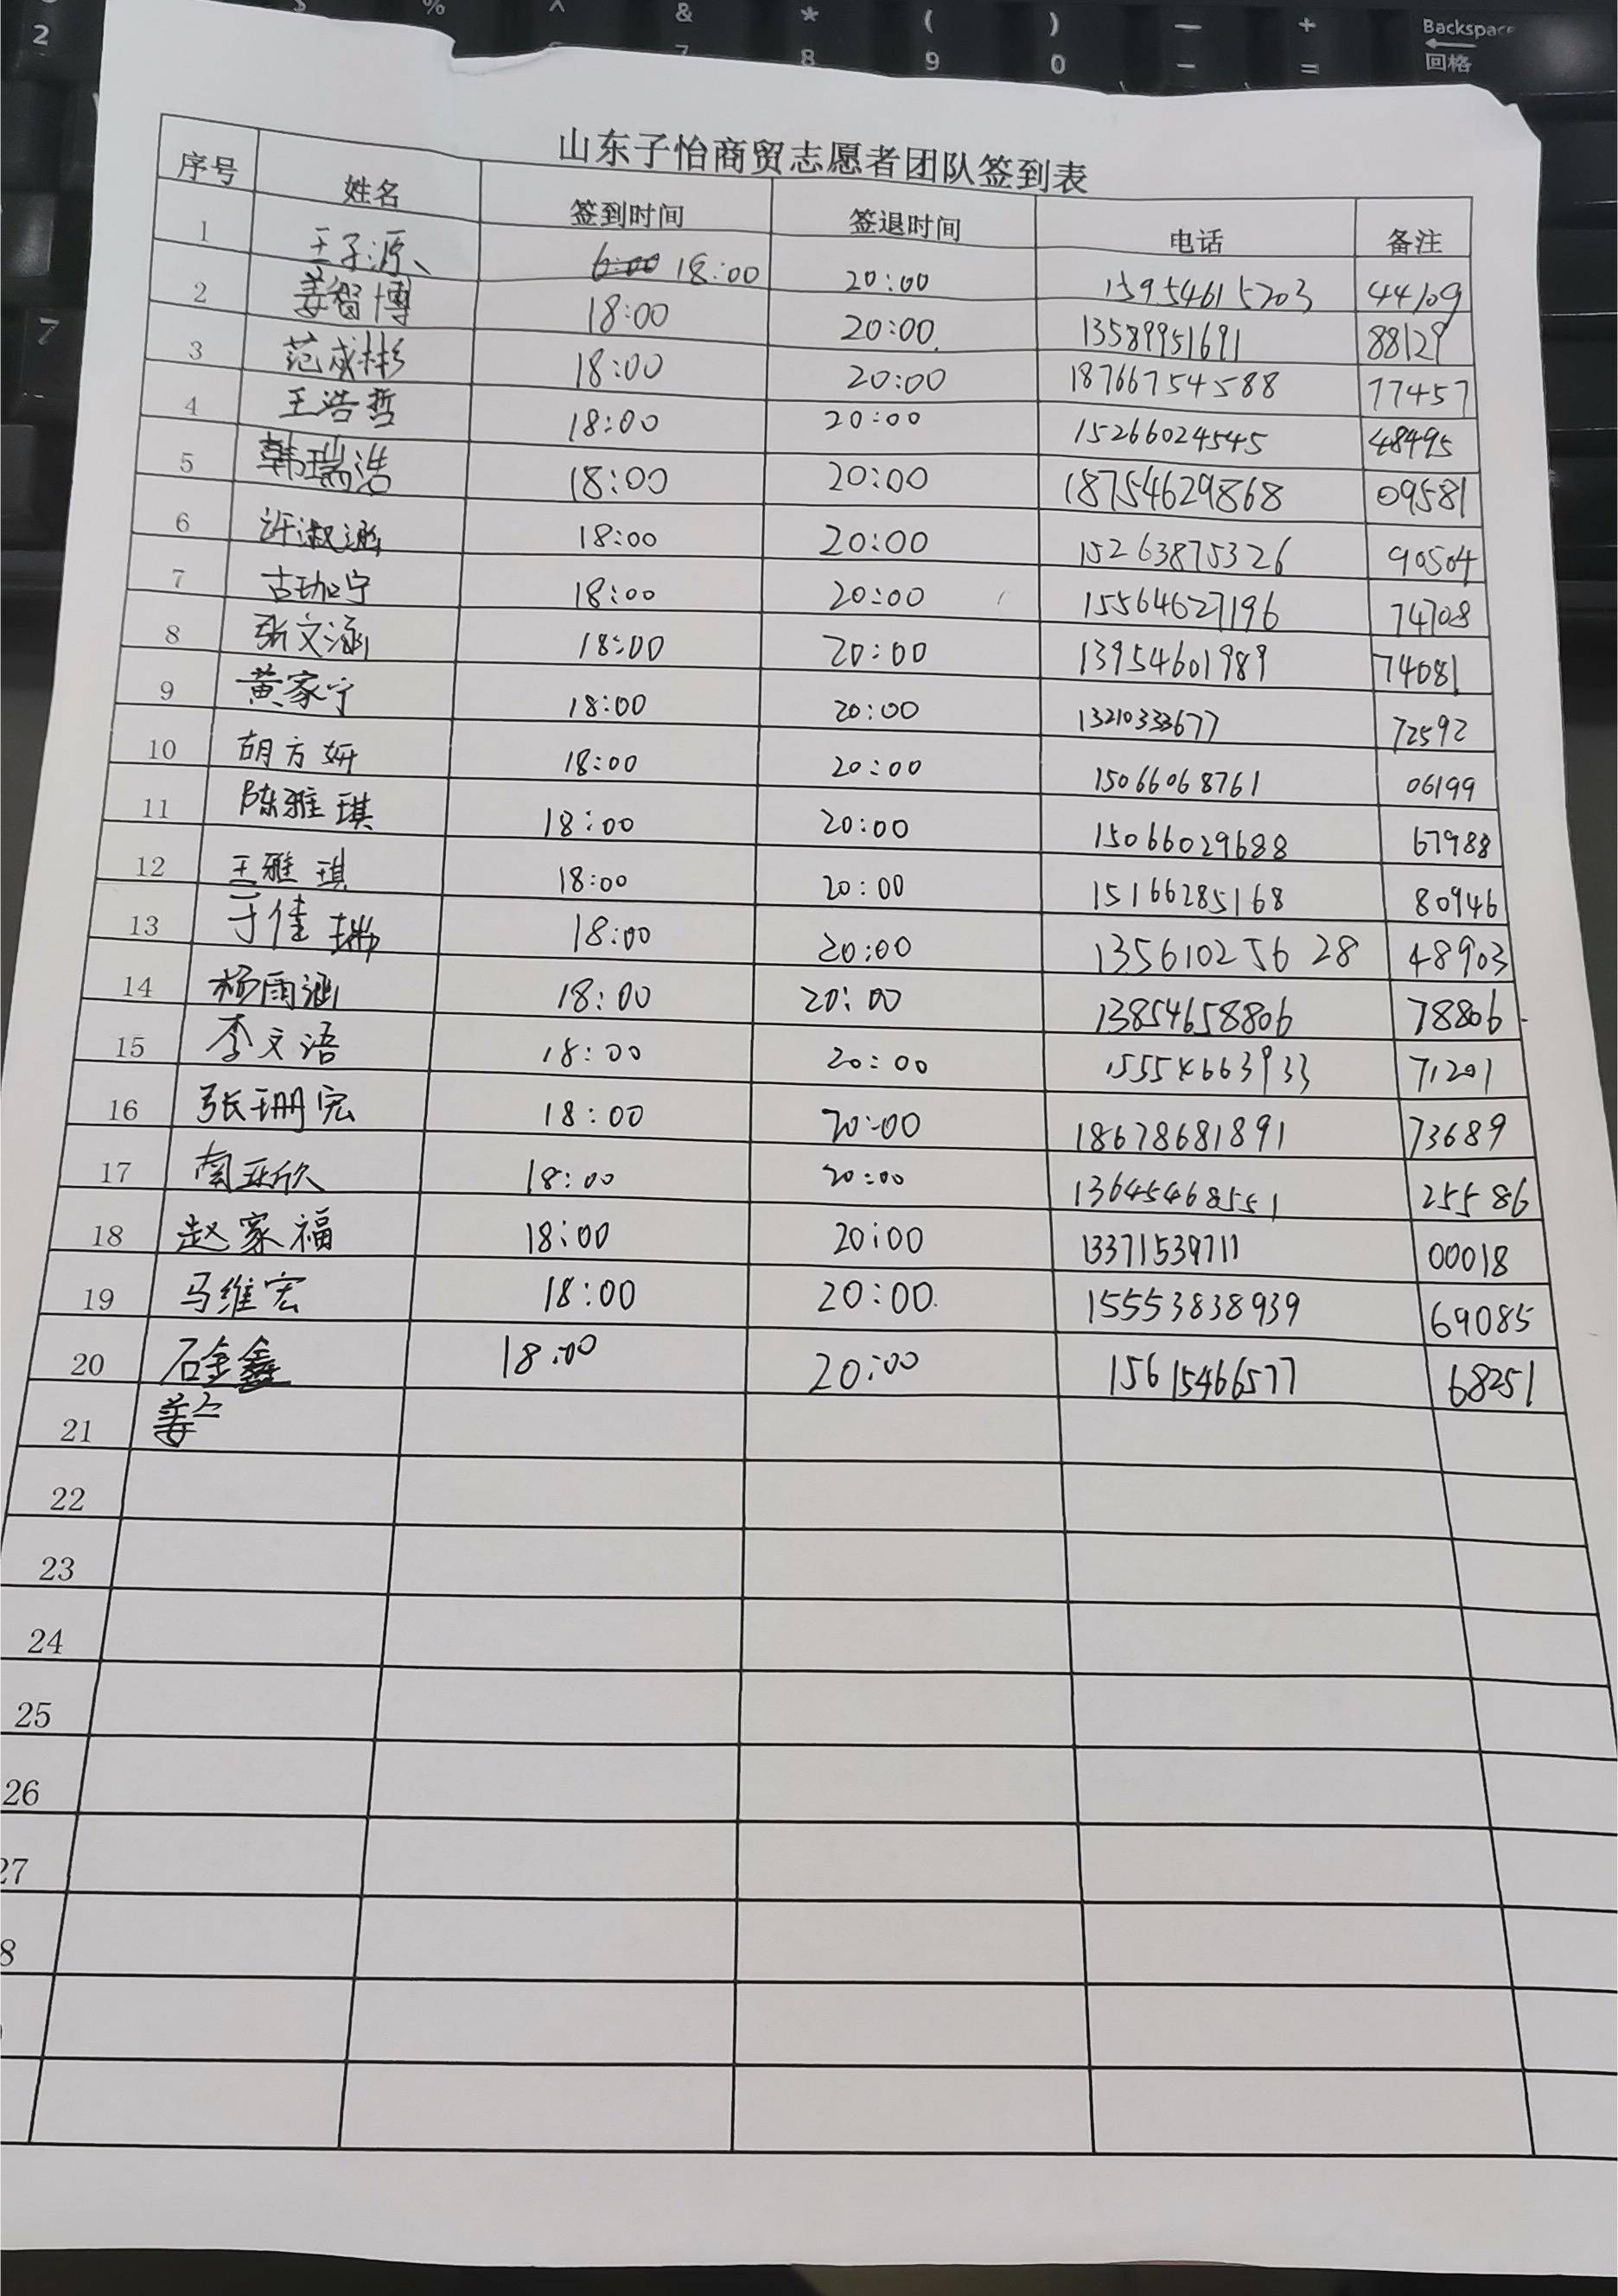 2 % ^ & * ( ) — + Backspace
7 8 9 0 - = 回格
7
山东子怡商贸志愿者团队签到表
序号 姓名 签到时间 签退时间 电话 备注
1 王子源 6:00 18:00 20:00 15954615203 44109
2 姜智博 18:00 20:00 13589951691 88129
3 范成彬 18:00 20:00 18766754588 77457
4 王浩哲 18:00 20:00 15266024545 48495
5 韩瑞浩 18:00 20:00 18754629868 09581
6 许淑涵 18:00 20:00 15263875326 90504
7 古珈宁 18:00 20:00 15564627196 74708
8 张文涵 18:00 20:00 13954601989 74081
9 黄家宁 18:00 20:00 13210333677 72592
10 胡方妍 18:00 20:00 15066068761 06199
11 陈雅琪 18:00 20:00 15066029688 67988
12 王雅琪 18:00 20:00 15166285168 80946
13 于佳瑞 18:00 20:00 13561025628 48903
14 杨雨涵 18:00 20:00 13854658806 78806
15 李文语 18:00 20:00 15554663933 71201
16 张珊宏 18:00 20:00 18678681891 73689
17 南亚欣 18:00 20:00 13645468551 25586
18 赵家福 18:00 20:00 13371539711 00018
19 马维宏 18:00 20:00 15553838939 69085
20 石金鑫 18:00 20:00 15615466577 68251
21 姜
22
23
24
25
26
27
8